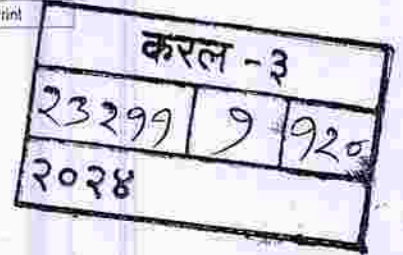 rint
करल - ३
२३२११ १ १२०
२०२४